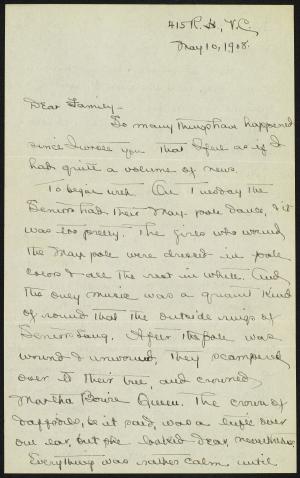 415 R. H., V.C.
May 10, 1908.
Dear Family -
So many things have happened
since I wrote you that I feel as if I
had quite a volume of news.
To began with On Tuesday the
Seniors had their May-pole dance, & it
was too pretty. The girls who wound
the May pole were dressed in pale
colors & all the rest in white. And
the only music was a quaint kind
of round that the outside rings of
Seniors sang. After the pole was
wound & unwound, they scampered
over to their tree, and crowned
Martha Bowie Queen. The crown of
daffodils, be it said, was a trifle over
one ear, but she looked dear, nevertheless.
Everything was rather calm until